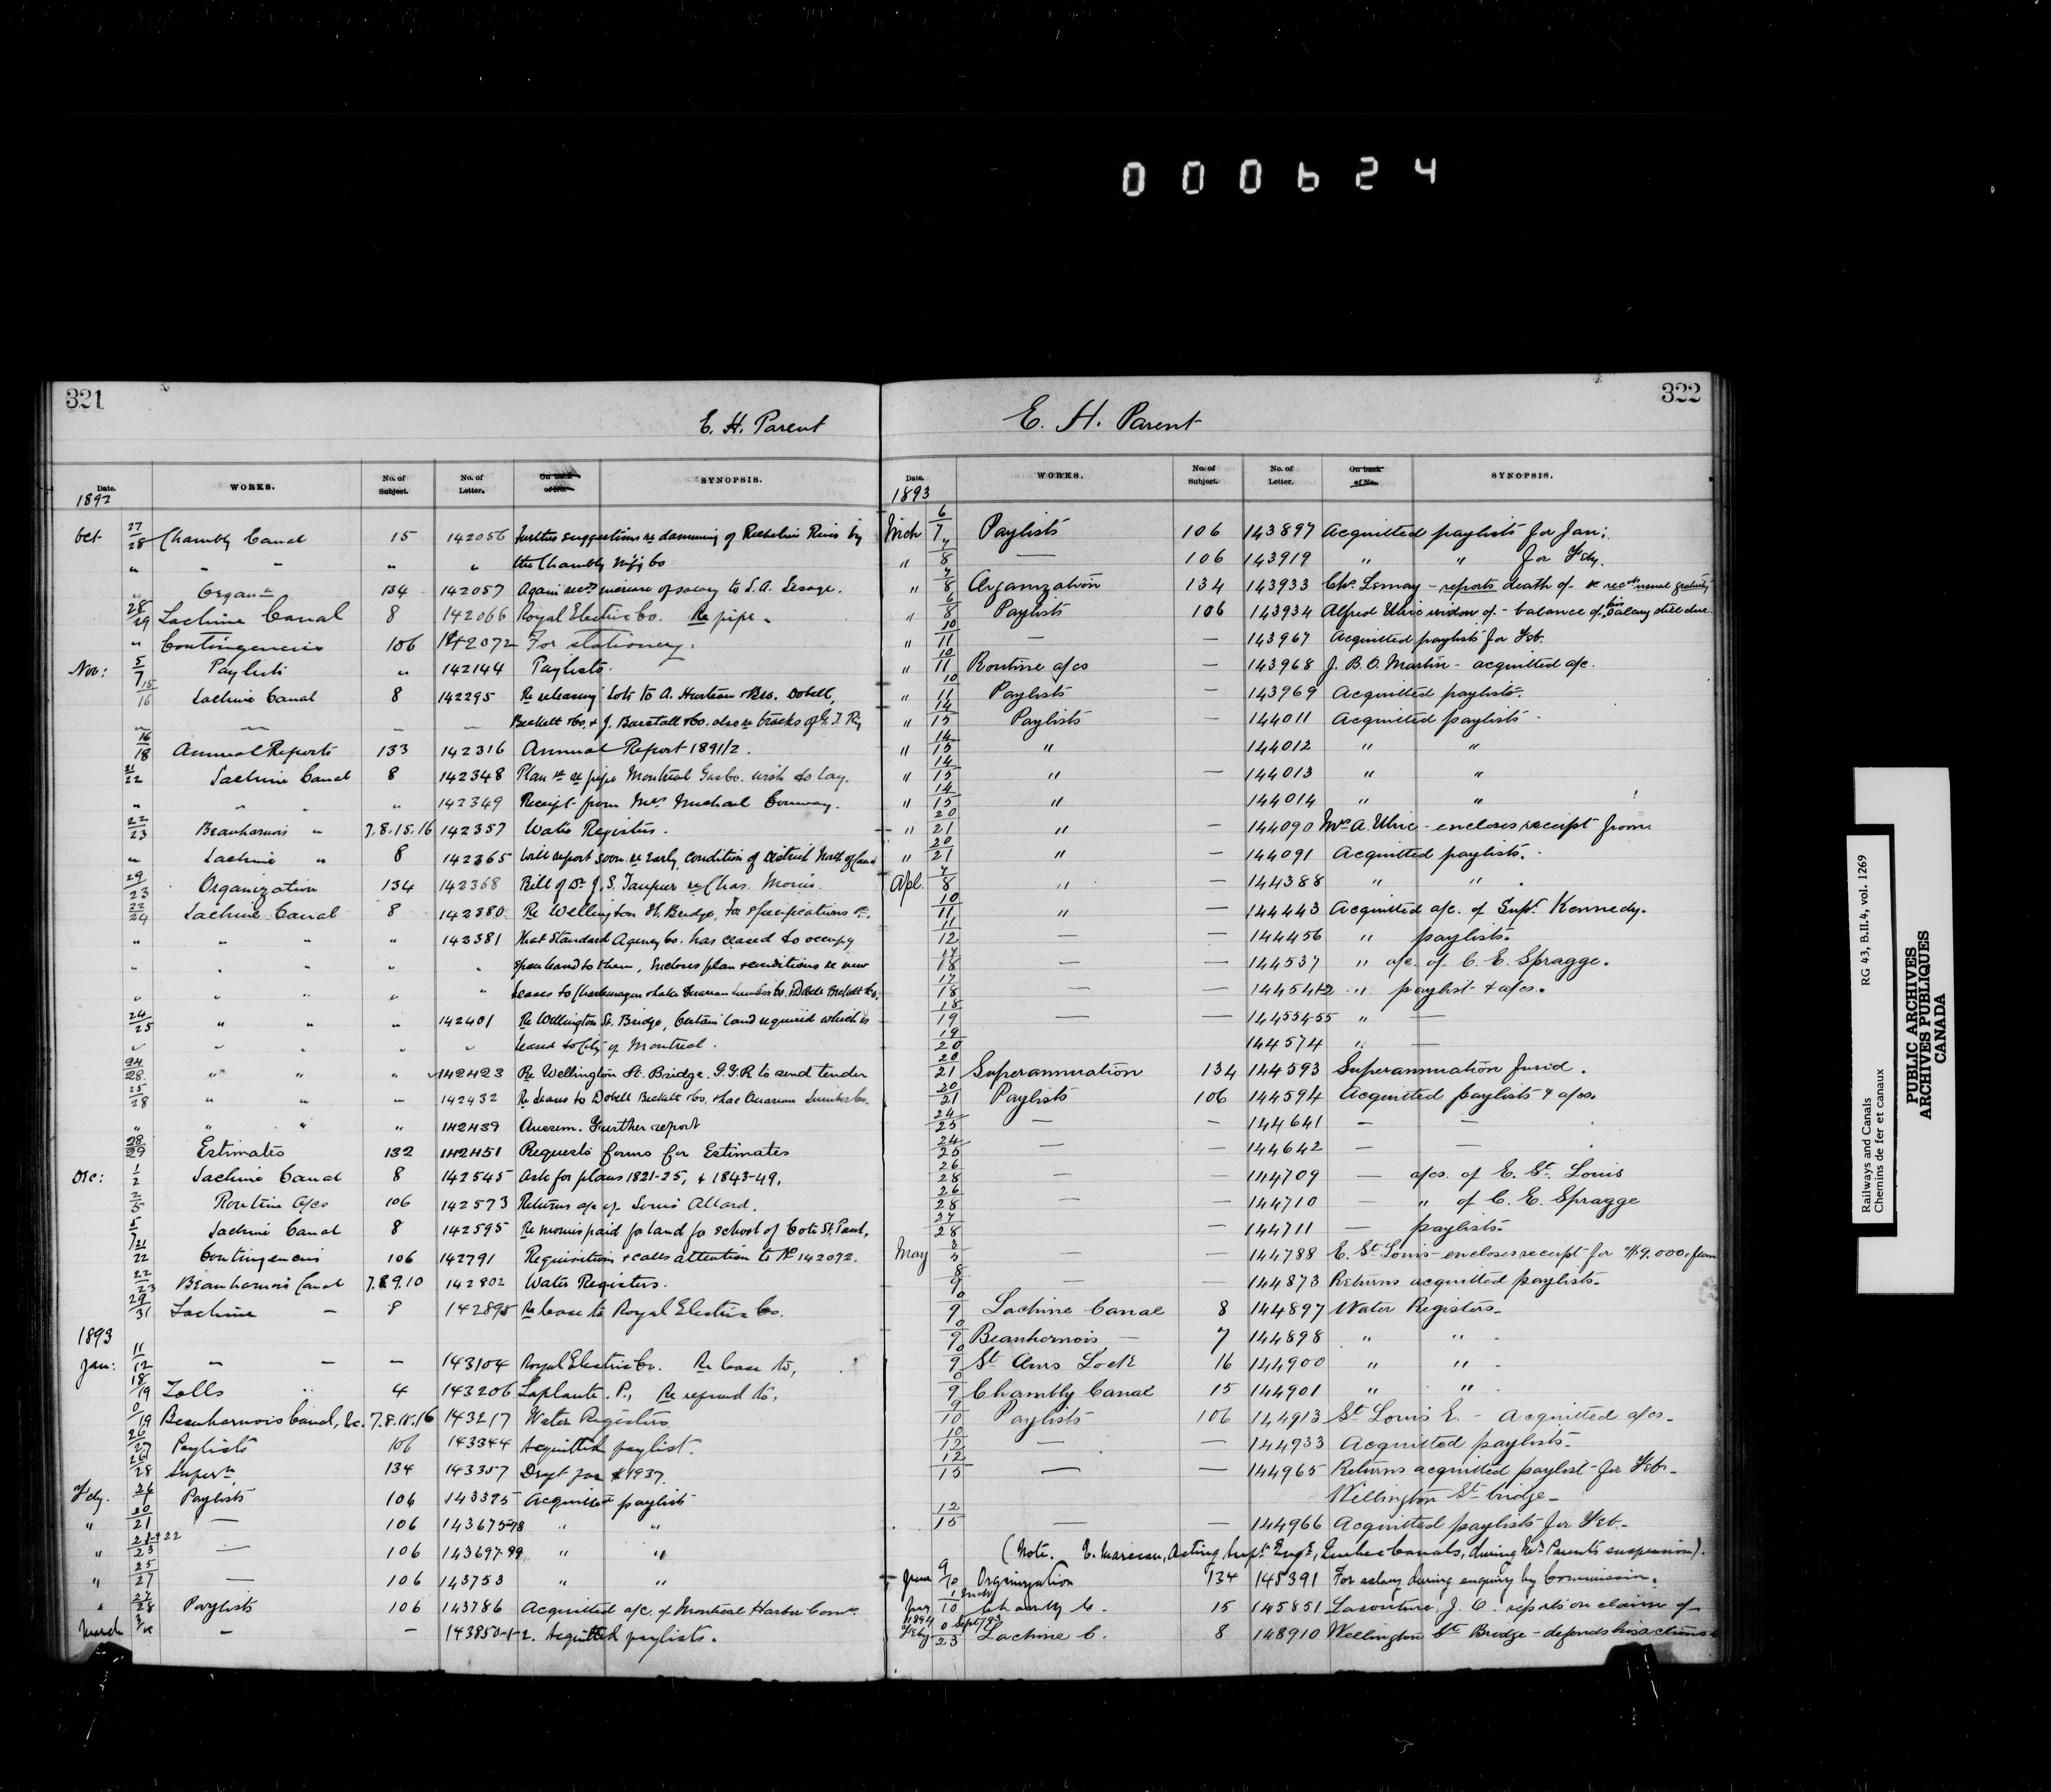 000624
321
E. H. Parent
Date. WORKS. No. of Subject. No. of Letter. On back of No. SYNOPSIS.
1892
Oct 27/28 Chambly Canal 15 142056 Further suggestions re damming of Richelieu River by
" " " " " the Chambly M'f'g Co
" Organ'n 134 142057 Again increase of salary to L.A. Lesage.
28/29 Lachine Canal 8 142066 Royal Electric Co. Re pipe.
" Contingencies 106 142072 For stationery.
Nov: 5/7 Paylists " 142144 Paylists.
15/16 Lachine Canal 8 142295 Re releasing Lots to A. Hurteau & Bro. Dobell,
Beckett & Co. & J. Burstall & Co. also re tracks of G. T. Ry
16/18 Annual Reports 133 142316 Annual Report 1891/2.
21/22 Lachine Canal 8 142348 Plan re pipe Montreal Gas Co. wish to lay.
" " " " 142349 Receipt from Michael Conway.
22/23 Beauharnois " 7.8.15.16 142357 Water Registers.
" Lachine " 8 142365 Will report soon re early condition of District North of Canal
Organization 134 142368 Bill of Dr J. S. re Chas. Morris.
Lachine Canal 8 142380 Re Wellington St. Bridge, For specifications
" " " " 142381 That Standard Agency Co. has ceased to occupy
" " " " " land to them, Encloses plan & conditions re new
" " " " " Leases to
24/25 " " " 142401 Re Wellington St. Bridge, Certain land required which is
" " " " " leased to City of Montreal.
24/28 " " " 142423 Re Wellington St. Bridge. G.T.R to send tender
25/28 " " " 142432 Re Leases to Dobell Beckett & Co.
" " " " 142439 Further report
28/29 Estimates 132 142451 Requests forms for Estimates
Dec: 1/2 Lachine Canal 8 142545 Ask for plans 1821-25, & 1843-49.
2/5 Routine a/cs 106 142573 Returns a/c of Louis Allard.
5/7 Lachine Canal 8 142595 Re monies paid for land for school of Cote St. Paul.
21/22 Contingencies 106 142791 Requisition & calls attention to No 142072.
22/23 Beauharnois Canal 7.8.9.10 142802 Water Registers.
29/31 Lachine — 8 142895 Re lease to Royal Electric Co.
1893
Jan: 11/12 — — — 143104 Royal Electric Co. Re lease to,
18/19 Tolls " 4 143206 Laplante. P., Re refund to,
0/19 Beauharnois Canal, &c. 143217 Water Registers
26/27 Paylists 106 143344 Acquitted paylist.
26/28 Super'n 134 143357 Dep't for
Feby. Paylists 106 143395 Acquitted paylists
" 20/21 — 106 143675-78 " "
" — 106 143697-99 " "
" 25/27 — 106 143753 " "
" 27/28 Paylists 106 143786 Acquitted a/c. of Montreal Harbor Com'rs.
March — — 143850-1-2. Acquitted paylists.
322
E. H. Parent
Date. WORKS. No. of Subject. No. of Letter. On back of No. SYNOPSIS.
1893
Mch 6/7 Paylists 106 143897 Acquitted paylists for Jan:
" 7/8 — 106 143919 " " for Feby.
" 7/8 Organization 134 143933 Chs. Lemay - reports death of - & usual gratuity
" 6/8 Paylists 106 143934 Alfred Ulric widow of - balance of his salary still due.
" 10/11 — — 143967 Acquitted paylists for Feb.
" 10/11 Routine a/cs — 143968 J. B. O. Martin - acquitted a/c.
" 10/11 Paylists — 143969 Acquitted paylists.
" 14/15 Paylists — 144011 Acquitted paylists
" 14/15 " — 144012 " "
" 14/15 " — 144013 " "
" 14/15 " 144014 " "
" 20/21 " — 144090 Mrs A. Ulric - encloses receipt from.
" 20/21 " — 144091 Acquitted paylists.
Apl. 7/8 " — 144388 " "
10/11 " — 144443 Acquitted a/c. of Supt. Kennedy.
11/12 — — 144456 " paylists.
17/18 — — 144537 " a/c. of C. E. Spragge.
17/18 — — 144541-2 " paylist & a/cs.
18/19 — — 144554-55 " —
19/20 144574 " —
20/21 Superannuation 134 144593 Superannuation fund.
20/21 Paylists 106 144594 Acquitted paylists & a/cs.
24/25 — — 144641 — —
24/25 — — 144642 — —
26/28 — 144709 — a/cs. of E. St. Louis
26/28 — — 144710 — " of C. E. Spragge
27/28 — 144711 — paylists.
May — — 144788 E. St. Louis - encloses receipt for $9.000. from
8/9 — — 144873 Returns acquitted paylists.
0/9 Lachine Canal 8 144897 Water Registers.
0/9 Beauharnois — 7 144898 " "
0/9 St. Anns Lock 16 144900 " "
0/9 Chambly Canal 15 144901 " "
9/10 Paylists 106 144913 St. Louis E. - Acquitted a/cs.
10/12 — — 144933 Acquitted paylists.
12/15 — — 144965 Returns acquitted paylist for Feb.
Wellington St. bridge.
12/15 — — 144966 Acquitted paylists for Feb.
(Note. E. Marceau, Acting Sup't Eng'r, Quebec Canals, during Mr. Parent's suspension).
June 9/10 Organization 134 145391 For salary during enquiry by Commission.
Chambly C. 15 145851 Lacouture, J. O. reports on claim of
1894 Feby 0/23 Sept/93 Lachine C. 8 148910 Wellington St. Bridge - defends his actions
Railways and Canals
Chemins de fer et canaux
RG 43, B.II.4, vol. 1269
PUBLIC ARCHIVES
ARCHIVES PUBLIQUES
CANADA